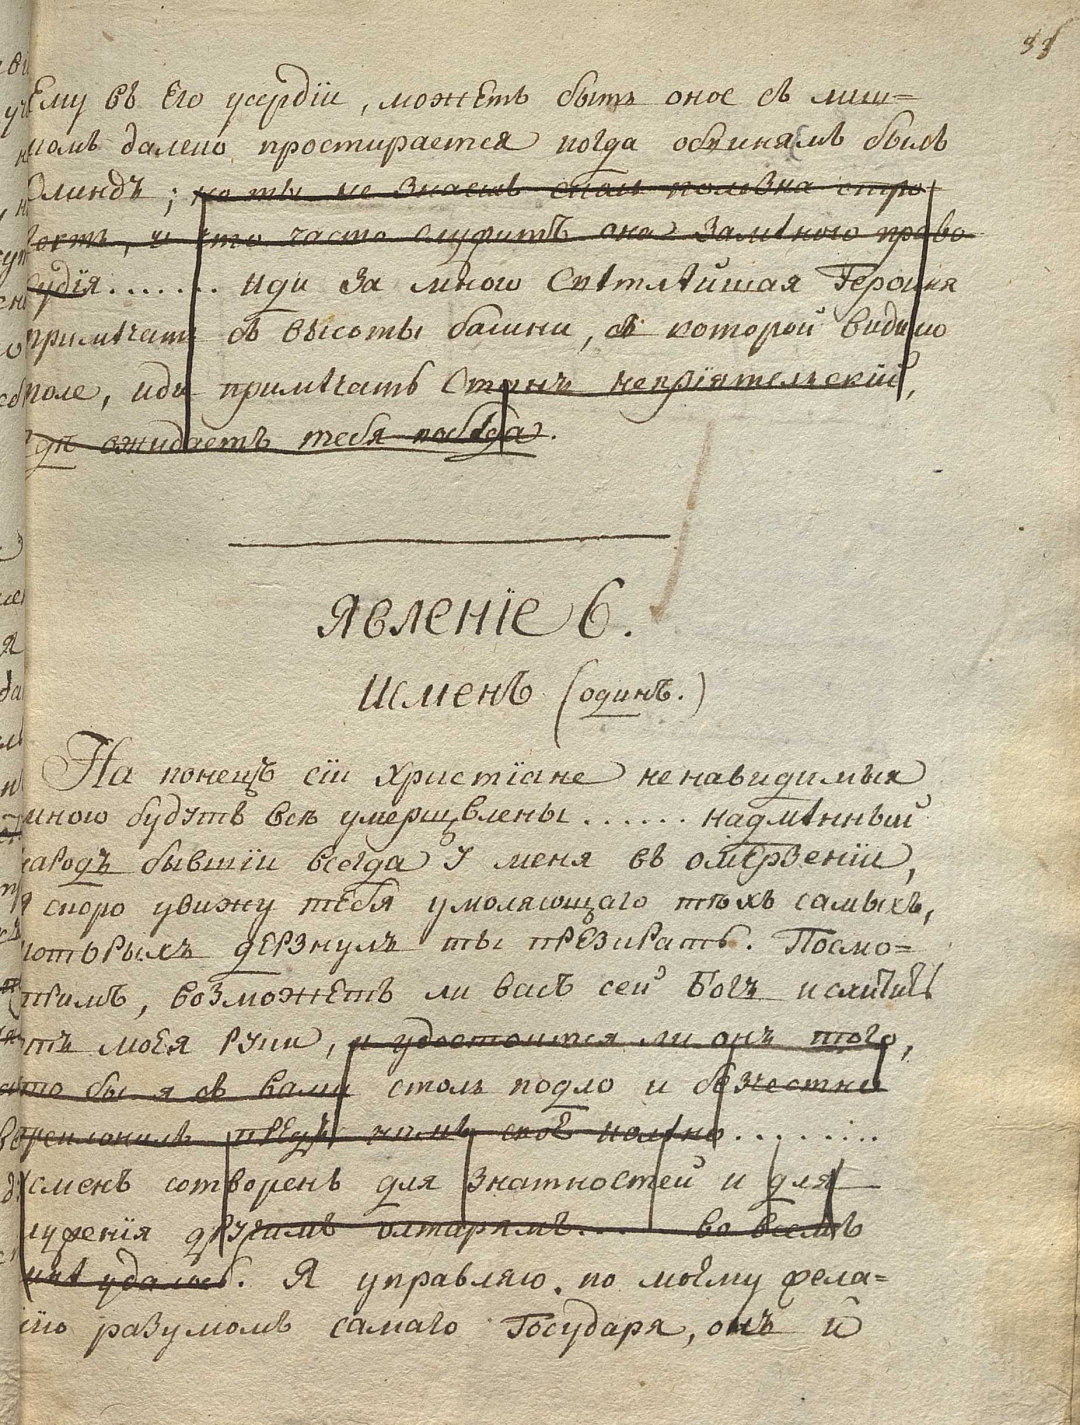 33
Ему въ Его усердіи, можетъ быть оное съ лиш=
комъ далеко простирается когда обвиняемъ былъ
Олиндъ; но ты не знаешь сколь полезна стро
гость, и что часто служитъ она замѣною право
судія....... Иди за мною Свѣтлѣйшая Героиня
примѣчать съ высоты башни, съ которой видимо
поле, иди примѣчать Станъ непріятельскій,
гдѣ ожидаетъ тебя побѣда.
Явленіе 6.
Исменъ (одинъ.)
На конецъ сіи Христіане ненавидимыя
мною будутъ всѣ умерщвлены...... надмѣнный
народъ бывшіи всегда у меня въ омерзеніи,
я скоро увижу тебя умоляющаго тѣхъ самыхъ,
которыхъ дерзнулъ ты презирать. Посмо=
тримъ, возможетъ ли васъ сей Богъ исхитить
отъ моея руки, и удостоится ли онъ того,
что бы я съ вами столь подло и безчестно
преклонилъ предъ нимъ своё колѣно.........
Исменъ сотворенъ для знатностей и для
служенія другимъ олтарямъ.... во всемъ
мнѣ удалось. Я управляю по моему жела=
нію разумомъ самаго Государя, онъ и